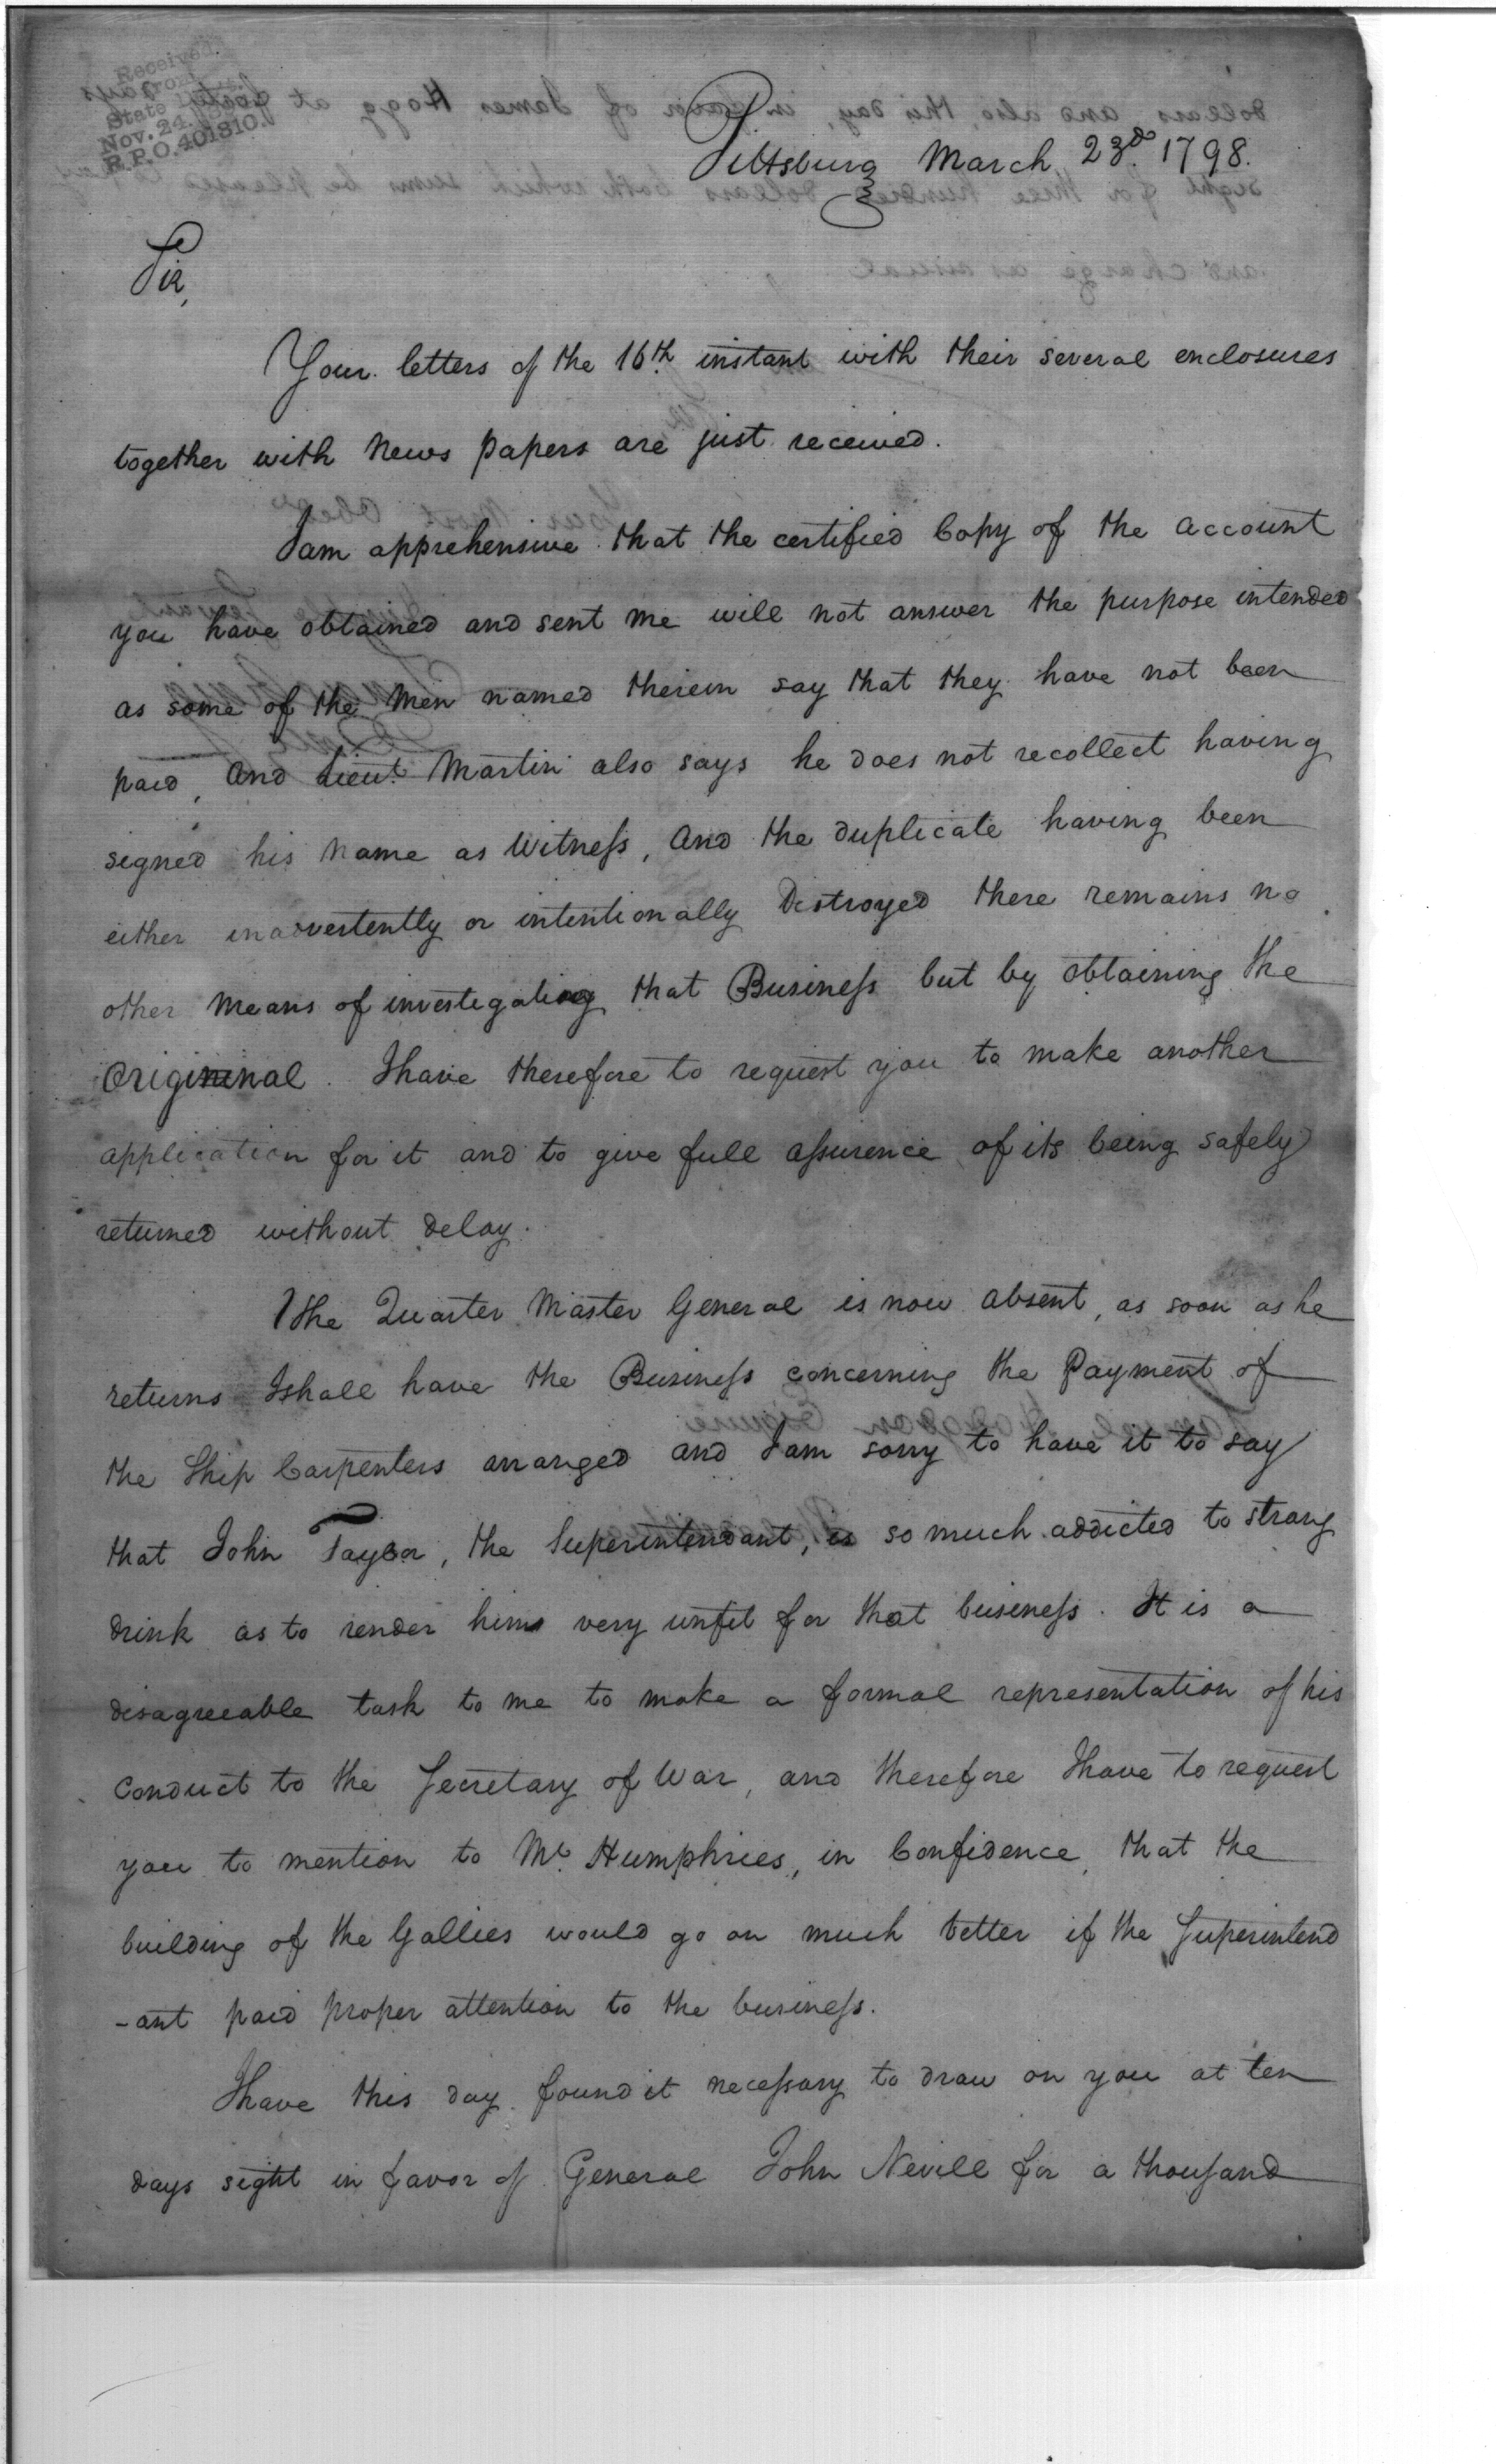 Received
from
State
Nov. 24.
R.P.O. 401810.
Pittsburg March 23d. 1798.
Sir,
Your letters of the 16th instant with their several enclosures
together with News papers are just received.
I am apprehensive that the certified Copy of the account
you have obtained and sent me will not answer the purpose intended
as some of the Men named therein say that they have not been
paid, and Lieut. Martin also says he does not recollect having
signed his Name as Witness, and the duplicate having been
either inadvertently or intentionally Destroyed there remains no
other Means of investigating that Business but by obtaining the
Origininal. I have therefore to request you to make another
application for it and to give full assurence of its being safely
returned without delay.
The Quarter Master General is now absent, as soon as he
returns I shall have the Business concerning the Payment of
the Ship Carpenters arranged and I am sorry to have it to say
that John Taylor, the Superintendant, is so much addicted to strong
drink as to render him very unfit for that business. It is a
disagreeable task to me to make a formal representation of his
conduct to the Secretary of War, and therefore I have to request
you to mention to Mr. Humphries, in Confidence, that the
building of the Gallies would go on much better if the Superintend
-ant paid proper attention to the business.
I have this day found it necessary to draw on you at ten
days sight in favor of General John Nevill for a thousand